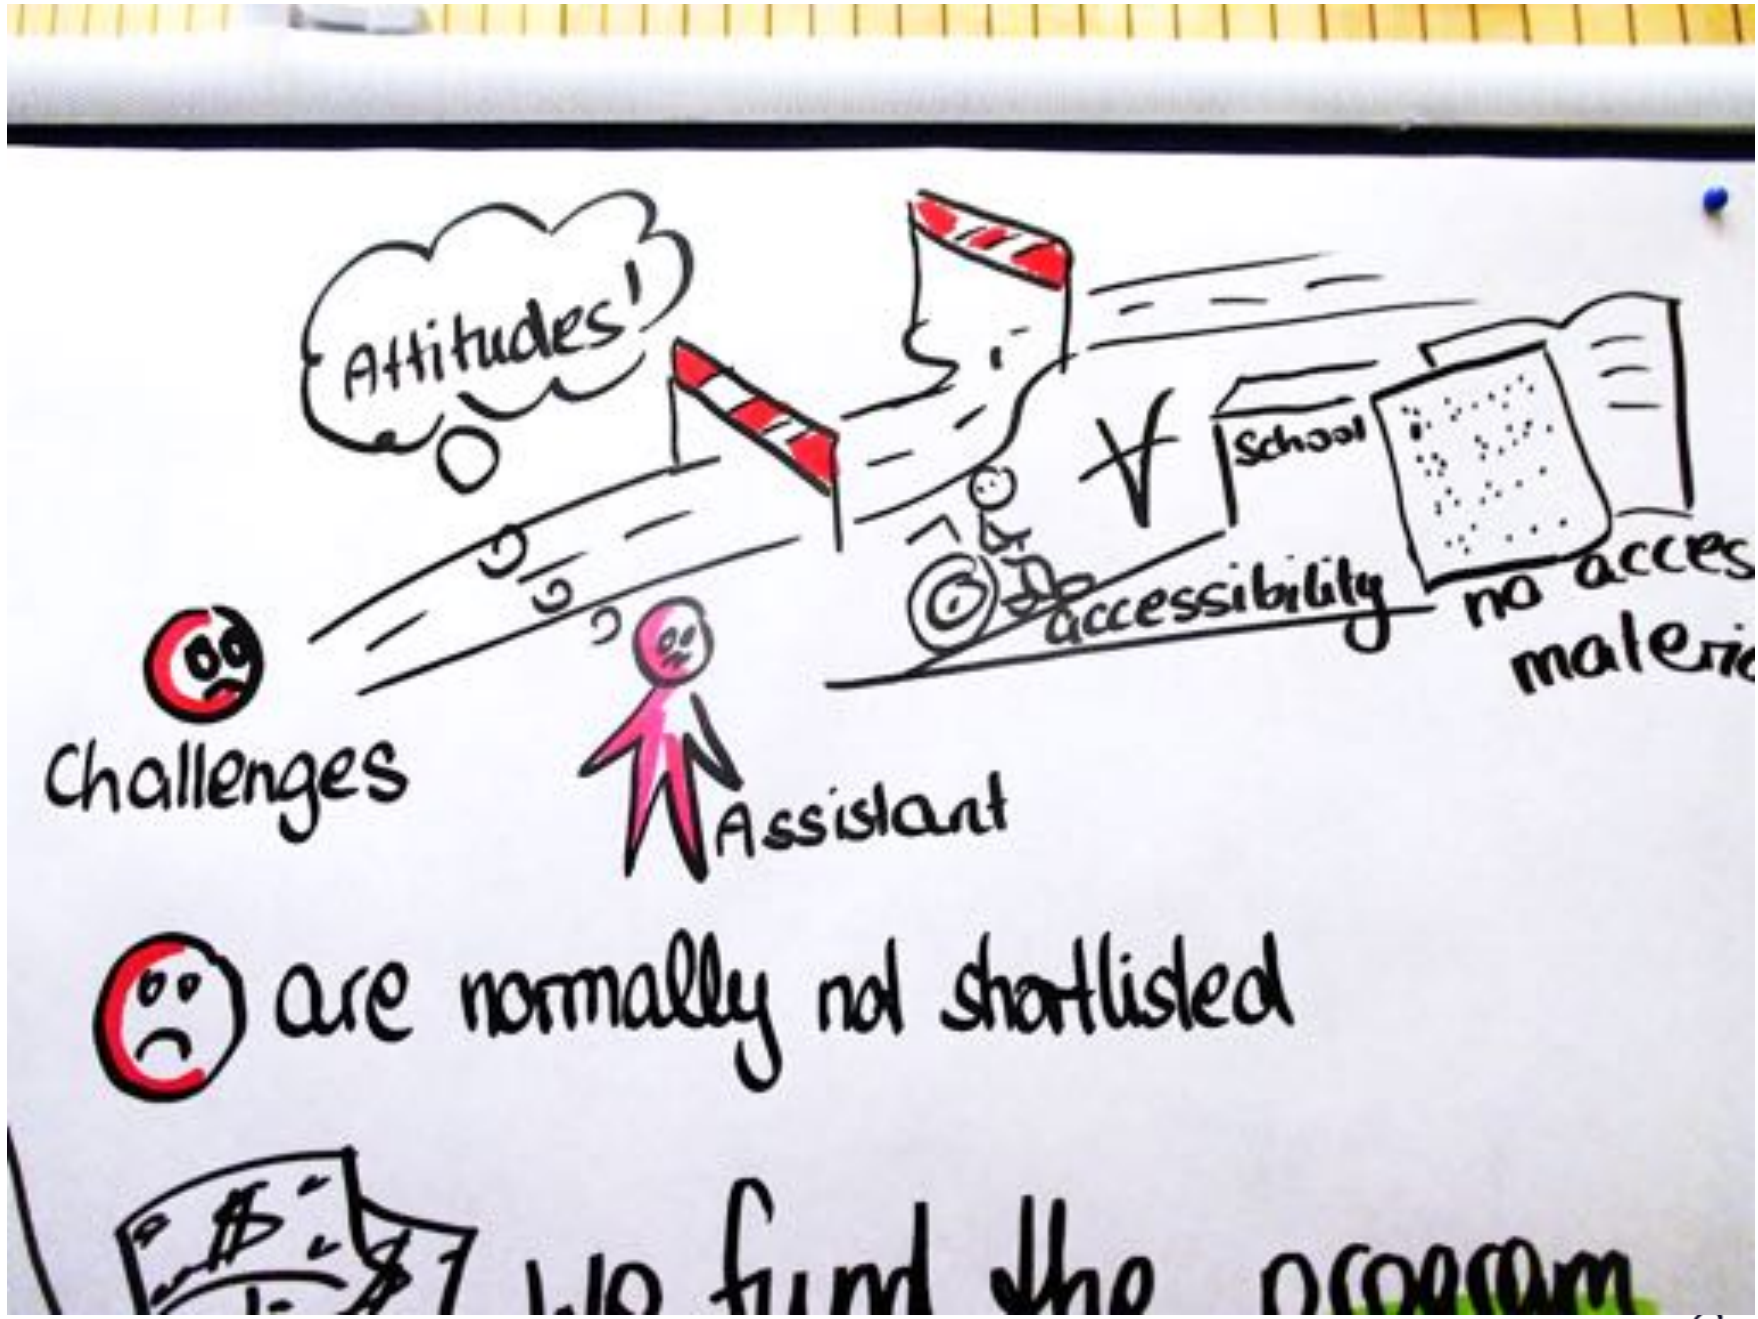 Attitudes!
School
accessibility
no acces
materi
Challenges
Assistant
are normally not shortlisted
$ $
we fund the program